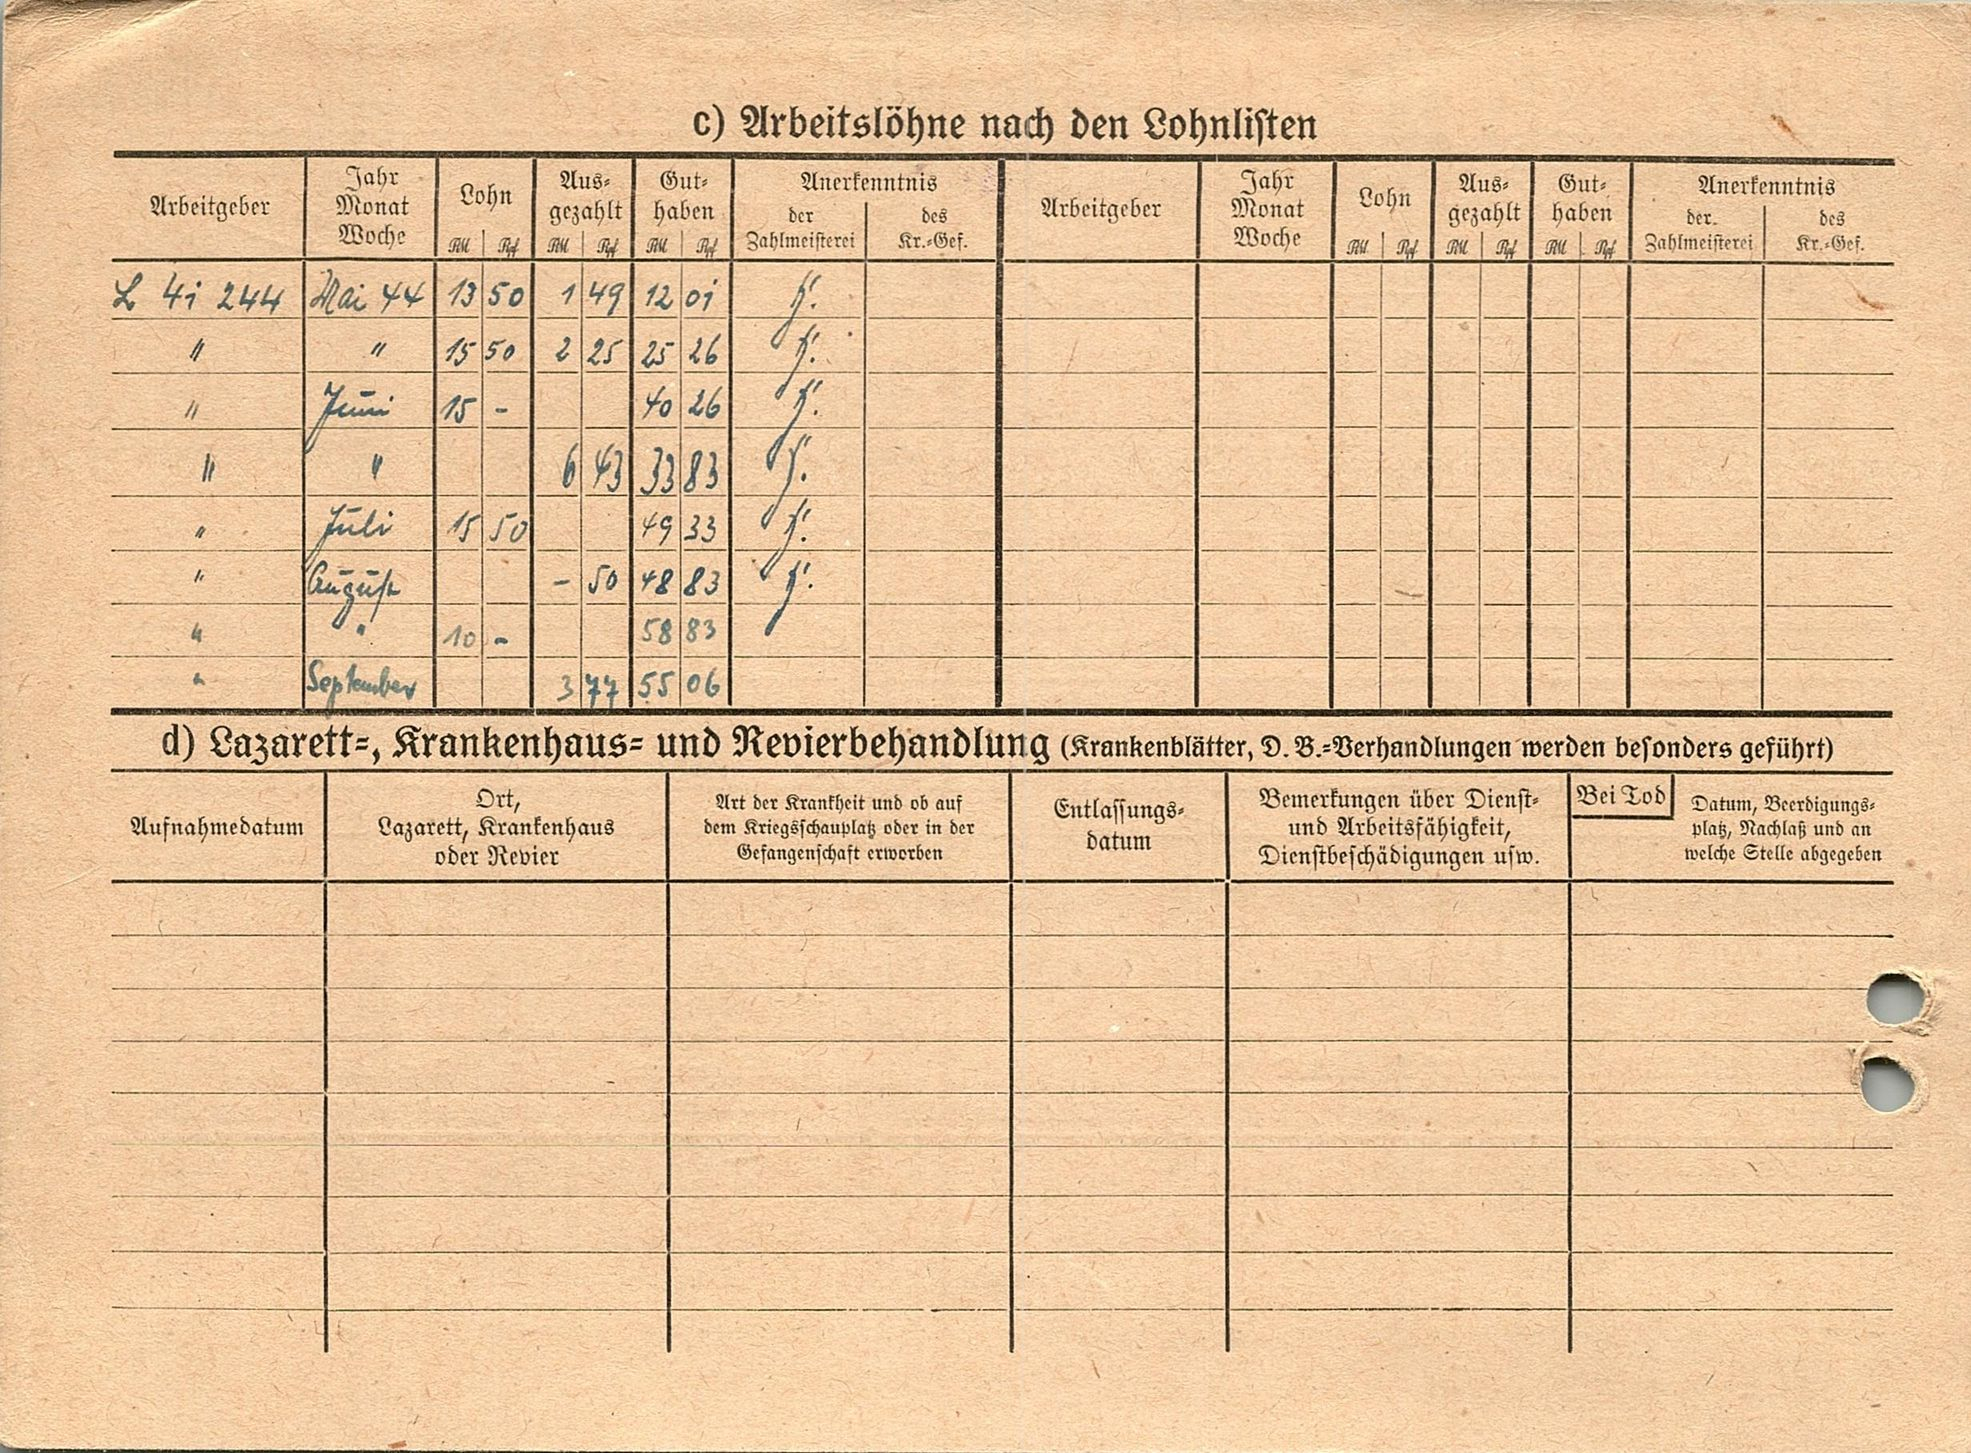 c) Arbeitslöhne nach den Lohnlisten
Arbeitgeber Jahr Monat Woche Lohn RM Rpf Aus= gezahlt RM Rpf Gut= haben RM Rpf Anerkenntnis der Zahlmeisterei des Kr.=Gef. Arbeitgeber Jahr Monat Woche Lohn RM Rpf Aus= gezahlt RM Rpf Gut= haben RM Rpf Anerkenntnis der Zahlmeisterei des Kr.=Gef.
L 4i 244 Mai 44 13 50 1 49 12 01
" " 15 50 2 25 25 26
" Juni 15 - 40 26
" " 6 43 33 83
" Juli 15 50 49 33
" August - 50 48 83
" " 10 - 58 83
" September 3 77 55 06
d) Lazarett=, Krankenhaus= und Revierbehandlung (Krankenblätter, D. B.=Verhandlungen werden besonders geführt)
Aufnahmedatum
Ort,
Lazarett, Krankenhaus
oder Revier
Art der Krankheit und ob auf
dem Kriegsschauplatz oder in der
Gefangenschaft erworben
Entlassungs=
datum
Bemerkungen über Dienst=
und Arbeitsfähigkeit,
Dienstbeschädigungen usw.
Bei Tod
Datum, Beerdigungs=
platz, Nachlaß und an
welche Stelle abgegeben